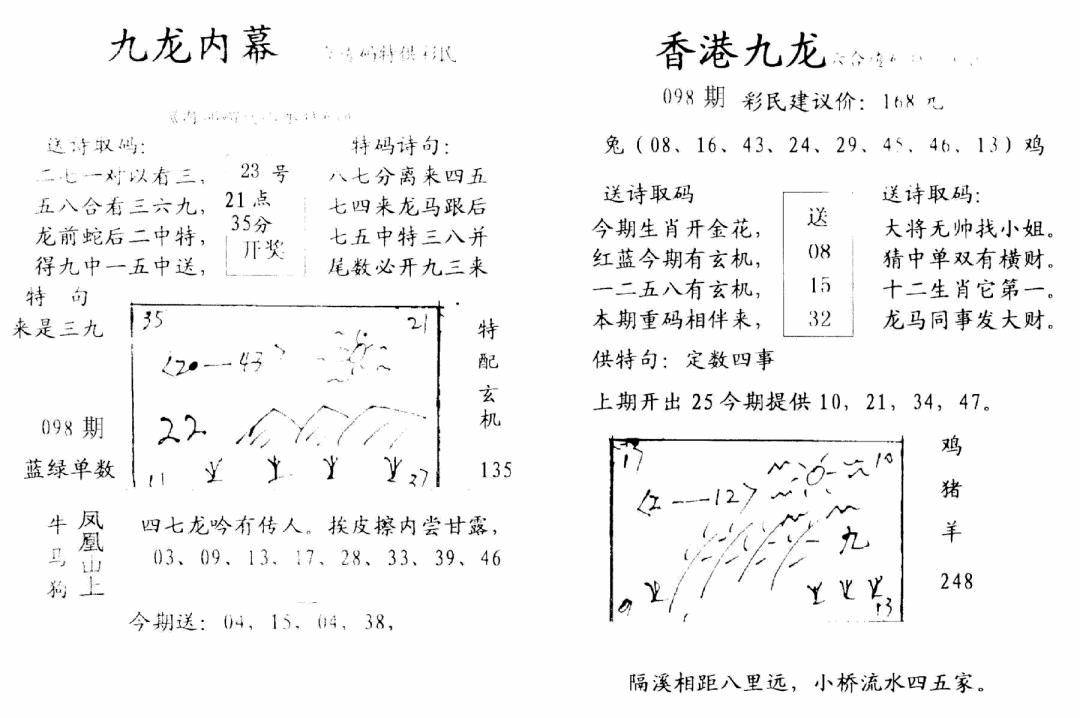 九龙内幕
码特供彩民
送诗取码:
二七一对以看三,
五八合看三六九,
龙前蛇后二中特,
得九中一五中送,
23 号
21点
35分
开奖
特码诗句:
八七分离来四五
七四来龙马跟后
七五中特三八并
尾数必开九三来
特 句
来是三九
35
21
<20—43>
22
11
27
特配玄机
135
098 期
蓝绿单数
牛
马
狗
凤凰山上
四七龙吟有传人。挨皮擦内尝甘露,
03、09、13、17、28、33、39、46
今期送: 04、15、04、38,
香港九龙
098 期 彩民建议价: 168 元
兔(08、16、43、24、29、45、46、13)鸡
送诗取码
今期生肖开金花,
红蓝今期有玄机,
一二五八有玄机,
本期重码相伴来,
送
08
15
32
送诗取码:
大将无帅找小姐。
猜中单双有横财。
十二生肖它第一。
龙马同事发大财。
供特句: 定数四事
上期开出 25 今期提供 10, 21, 34, 47。
17
10
<2—12>
九
9
13
鸡
猪
羊
248
隔溪相距八里远, 小桥流水四五家。